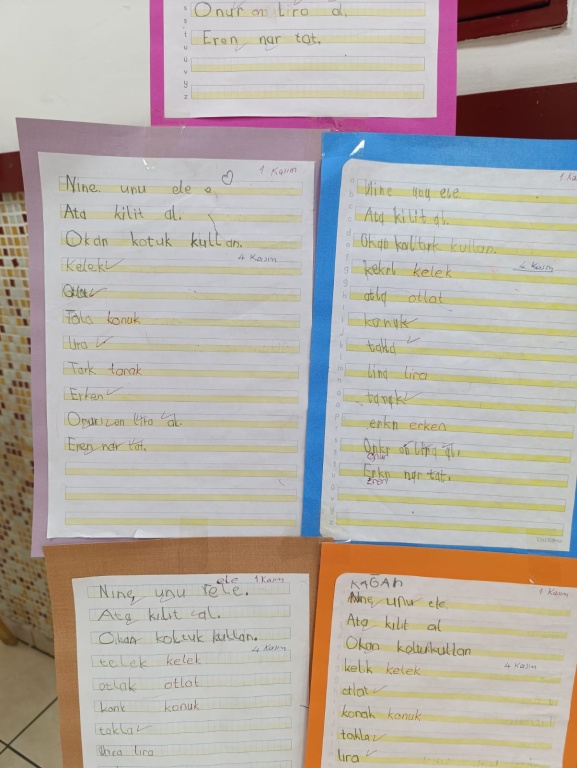 Onur on lira al.
Eren nar tat.
1 Kasım
Nine unu ele
Ata kilit al.
Okan kotuk kullan.
4 Kasım
Kelek
Otlat
Tolo konuk
lira
Tark tarak
Erken
lira al.
Eren nar tat.
1 Kasım
Nine unu ele
Ata kilit al.
Okan koltuk kullan.
4 Kasım
kelek
otlat
konuk
takla
lira
tarak
erkn erken
on lira al.
Onur
Erkn nar tat.
Eren
ele
1 Kasım
Nine unu rele.
Ata kılıt al.
Okan koltuk kullan.
4 Kasım
telek kelek
otlak otlat
konk konuk
takla
lira
KAĞAN
Nine unu ele
Ata kılıt al
Okan kullan
4 Kasım
kelik kelek
otlat
konak konuk
takla
lira